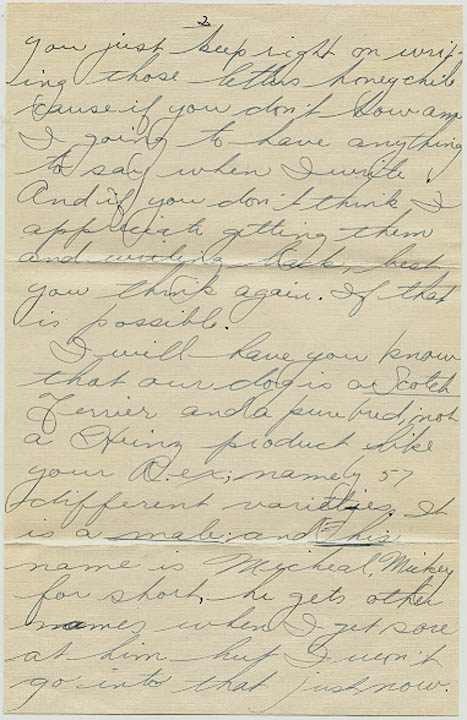 2
you just keep right on writ-
ing those letters honeychile
'cause if you don't how am
I going to have anything
to say when I write.
And if you don't think I
appreciate getting them
and writing back, best
you think again. If that
is possible.
I will have you know
that our dog is a Scotch
Terrier and a pure bred, not
a Heinz product like
your Rex; namely 57
different varieties. It
is a male; and his
name is Mycheal, Mickey
for short, he gets other
names when I get sore
at him but I won't
go into that just now.